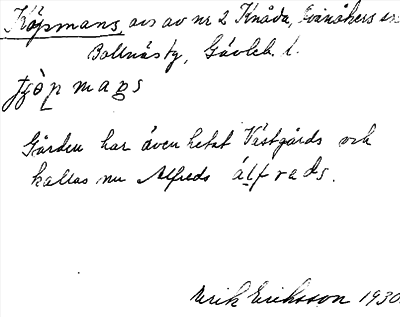 Köpmans, avs av nr 2 Knåda, Svinåkers sn
Bollnäs tg, Gävleb. l.
tjò̀p maɲs
Gården har även hetat Västgårds och
kallas nu Alfreds álfrads.
Erik Eriksson 1930.